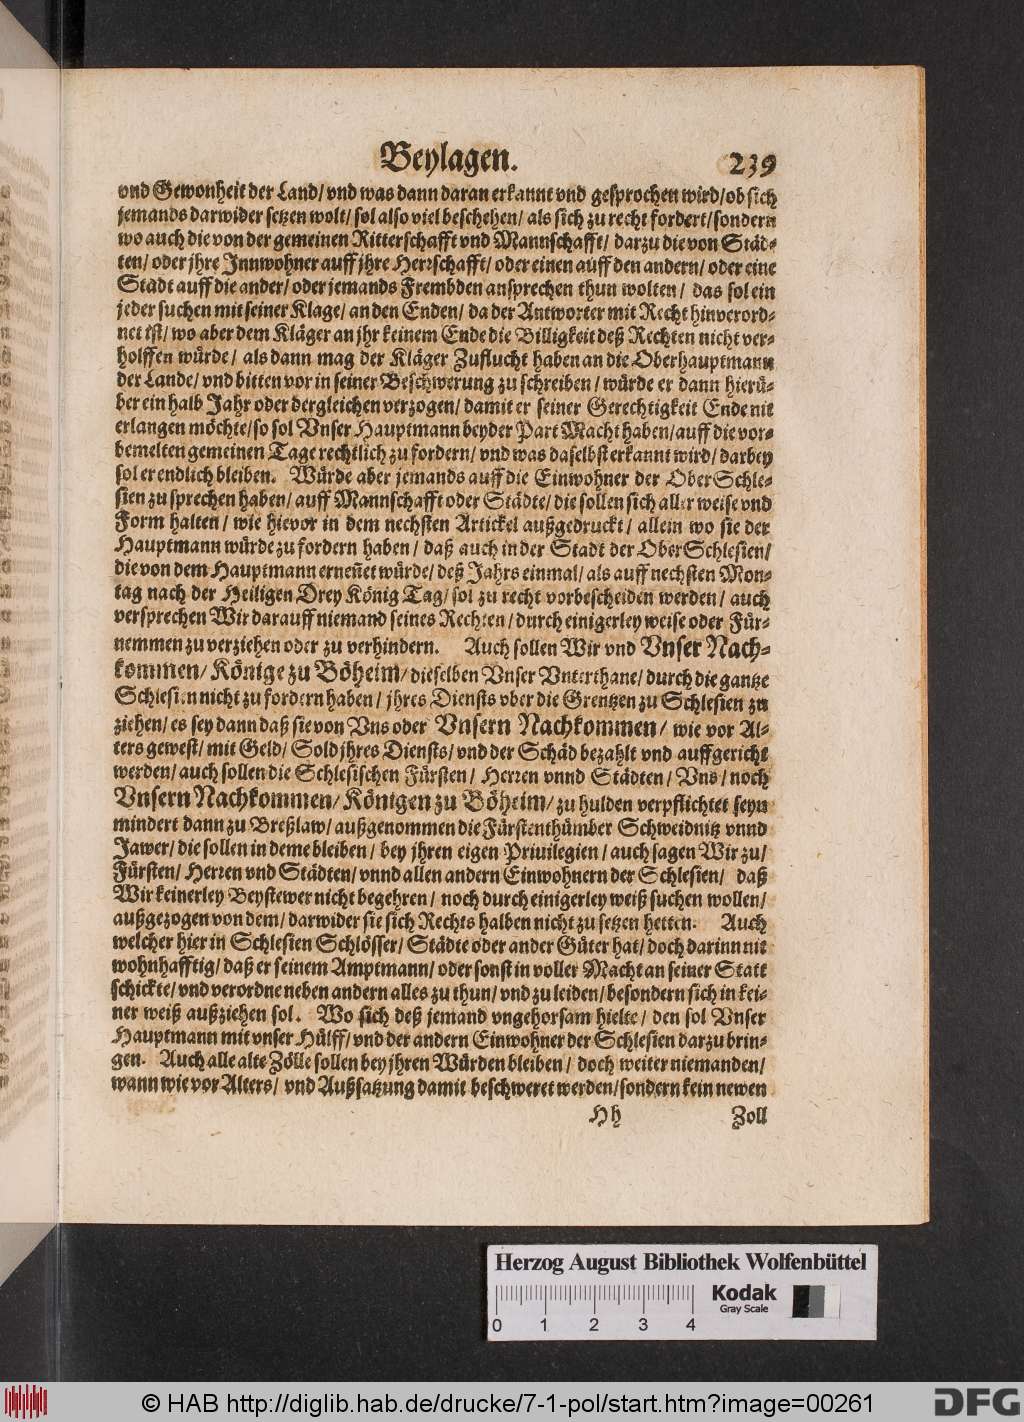 Beylagen. 239
vnd Gewonheit der Land/ vnd was dann daran erkannt vnd gesprochen wird/ ob sich
jemands darwider setzen wolt/ sol also viel beschehen/ als sich zu recht fordert/ sondern
wo auch die von der gemeinen Ritterschafft vnd Mannschafft/ darzu die von Städ-
ten/ oder jhre Innwohner auff jhre Herrschafft/ oder einen auff den andern/ oder eine
Stadt auff die ander/ oder jemands Frembden ansprechen thun wolten/ das sol ein
jeder suchen mit seiner Klage/ an den Enden/ da der Antworter mit Recht hinverord-
net ist/ wo aber dem Kläger an jhr keinem Ende die Billigkeit deß Rechten nicht ver-
holffen würde/ als dann mag der Kläger Zuflucht haben an die Oberhauptmann
der Lande/ vnd bitten vor in seiner Beschwerung zu schreiben/ würde er dann hierü-
ber ein halb Jahr oder dergleichen verzogen/ damit er seiner Gerechtigkeit Ende nit
erlangen möchte/ so sol Vnser Hauptmann beyder Part Macht haben/ auff die vor-
bemelten gemeinen Tage rechtlich zu fordern/ vnd was daselbst erkannt wird/ darbey
sol er endlich bleiben. Würde aber jemands auff die Einwohner der Ober Schle-
sien zu sprechen haben/ auff Mannschafft oder Städte/ die sollen sich aller weise vnd
Form halten/ wie hievor in dem nechsten Artickel außgedruckt/ allein wo sie der
Hauptmann würde zu fordern haben/ daß auch in der Stadt der Ober Schlesien/
die von dem Hauptmann ernen̄et würde/ deß Jahrs einmal/ als auff nechsten Mon-
tag nach der Heiligen Drey König Tag/ sol zu recht vorbescheiden werden/ auch
versprechen Wir darauff niemand seines Rechten/ durch einigerley weise oder Für-
nemmen zu verziehen oder zu verhindern. Auch sollen Wir vnd Vnser Nach-
kommen/ Könige zu Böheim/ dieselben Vnser Vnterthane/ durch die gantze
Schlesien nicht zu fordern haben/ jhres Diensts vber die Grentzen zu Schlesien zu
ziehen/ es sey dann daß sie von Vns oder Vnsern Nachkommen/ wie vor Al-
ters gewest/ mit Geld/ Sold jhres Diensts/ vnd der Schäd bezahlt vnd auffgericht
werden/ auch sollen die Schlesischen Fürsten/ Herren vnnd Städten/ Vns/ noch
Vnsern Nachkommen/ Königen zu Böheim/ zu hulden verpflichtet seyn
mindert dann zu Breßlaw/ außgenommen die Fürstenthümber Schweidnitz vnnd
Jawer/ die sollen in deme bleiben/ bey jhren eigen Priuilegien/ auch sagen Wir zu/
Fürsten/ Herren vnd Städten/ vnnd allen andern Einwohnern der Schlesien/ daß
Wir keinerley Beystewer nicht begehren/ noch durch einigerley weiß suchen wollen/
außgezogen von dem/ darwider sie sich Rechts halben nicht zu setzen hetten. Auch
welcher hier in Schlesien Schlösser/ Städte oder ander Güter hat/ doch darinn nit
wohnhafftig/ daß er seinem Amptmann/ oder sonst in voller Macht an seiner Statt
schickte/ vnd verordne neben andern alles zu thun/ vnd zu leiden/ besondern sich in kei-
ner weiß außziehen sol. Wo sich deß jemand vngehorsam hielte/ den sol Vnser
Hauptmann mit vnser Hülff/ vnd der andern Einwohner der Schlesien darzu brin-
gen. Auch alle alte Zölle sollen bey jhren Würden bleiben/ doch weiter niemanden/
wann wie vor Alters/ vnd Außsatzung damit beschweret werden/ sondern kein newen
Hh Zoll
Herzog August Bibliothek Wolfenbüttel
Kodak
Gray Scale
0 1 2 3 4
© HAB http://diglib.hab.de/drucke/7-1-pol/start.htm?image=00261
DFG